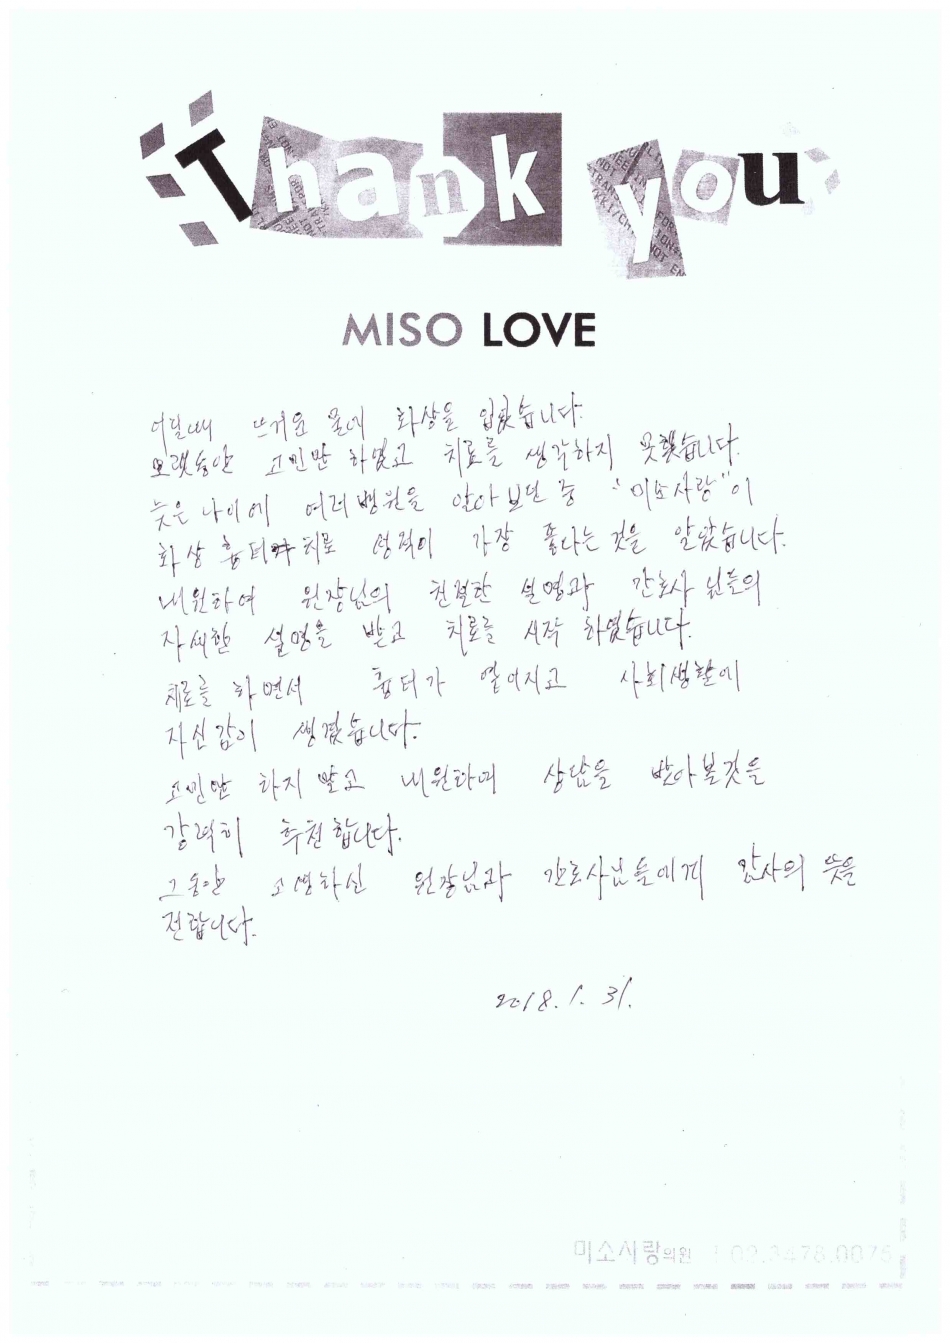 Thank you
MISO LOVE
어릴때 뜨거운 물에 화상을 입었습니다.
오랫동안 고민만 하였고 치료를 생각하지 못했습니다.
늦은 나이에 여러병원을 알아보던 중 "미소사랑"이
화상 흉터 치료 성적이 가장 좋다는 것을 알았습니다.
내원하여 원장님의 친절한 설명과 간호사님들의
자세한 설명을 받고 치료를 시작 하였습니다.
치료를 하면서 흉터가 옅어지고 사회생활에
자신감이 생겼습니다.
고민만 하지말고 내원하여 상담을 받아볼것을
강력히 추천합니다.
그동안 고생하신 원장님과 간호사님들에게 감사의 뜻을
전합니다.
2018. 1. 31.
미소사랑의원 02.3478.0075